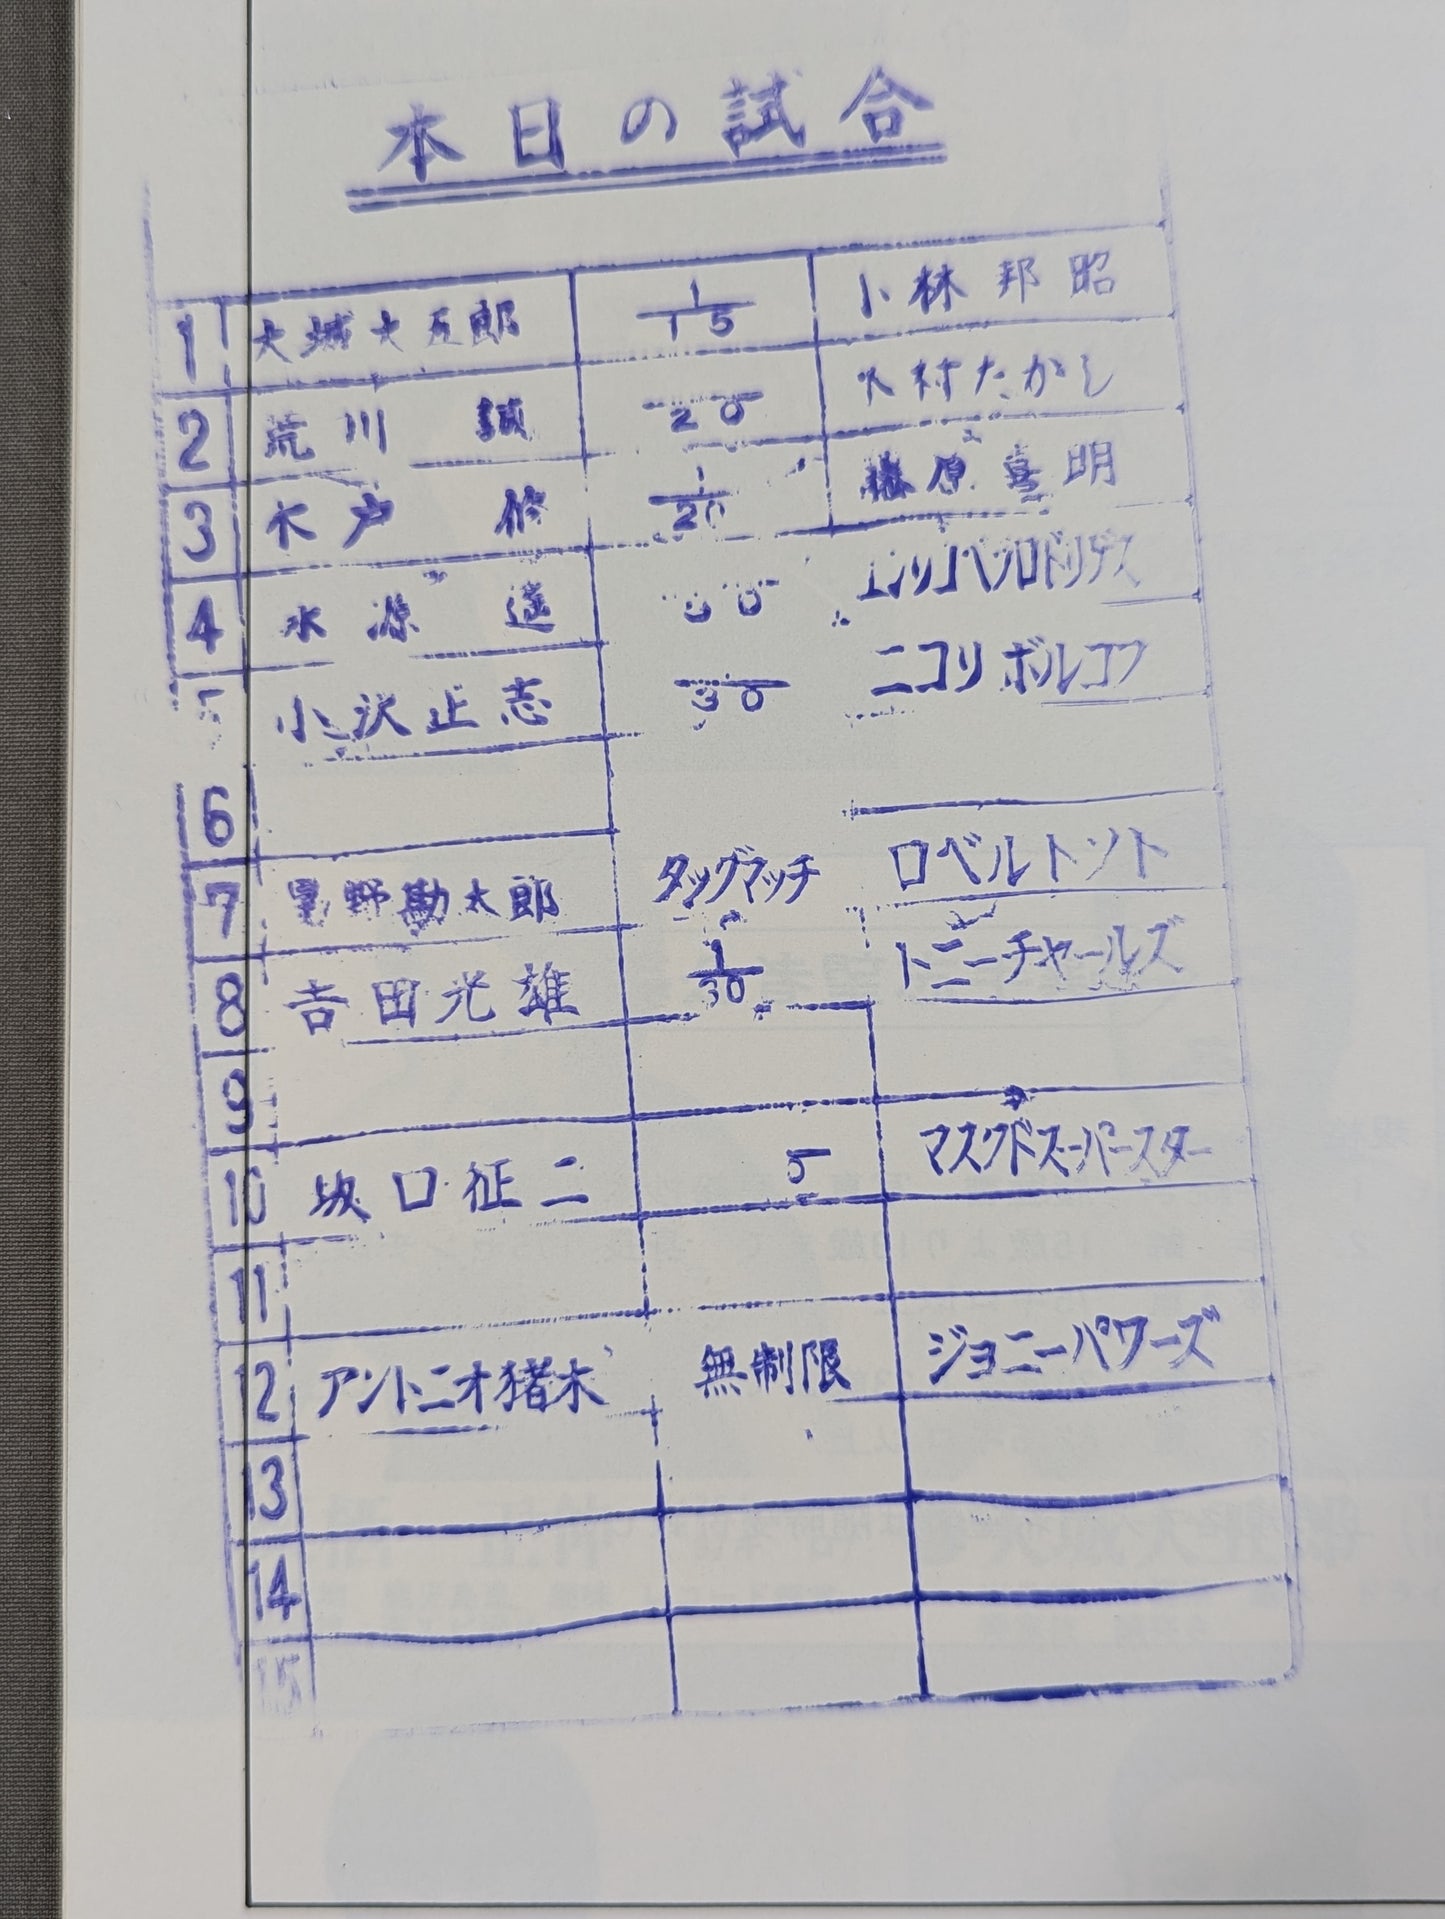 本日の試合
1 大城大五郎 1/15 小林邦昭
2 荒川 誠 20 木村たかし
3 木戸 修 1/20 藤原喜明
4 水源 遥 30
5 小沢正志 30 ニコリボルコフ
6
7 星野勘太郎 タッグマッチ ロベルトソト
8 吉田光雄 1/30 トニーチャールズ
9
10 坂口征二 5 マスクドスーパースター
11
12 アントニオ猪木 無制限 ジョニーパワーズ
13
14
15